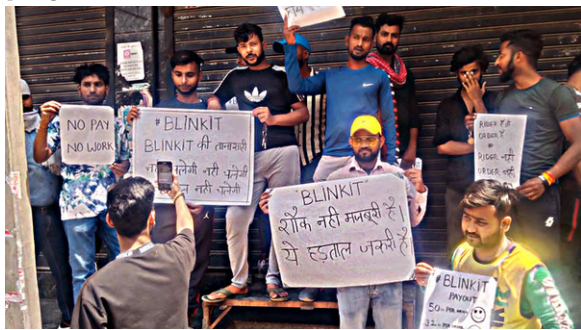 NO PAY
NO WORK
# BLINKIT
BLINKIT की तानाशाही
चलेगी नही चलेगी
नही चलेगी
"BLINKIT"
शौक नही मजबूरी है।
ये हड़ताल जरूरी है।
RIDER है तो
ORDER है
#
RIDER नही
ORDER नही
# BLINKIT
PAYOUT
50
PER